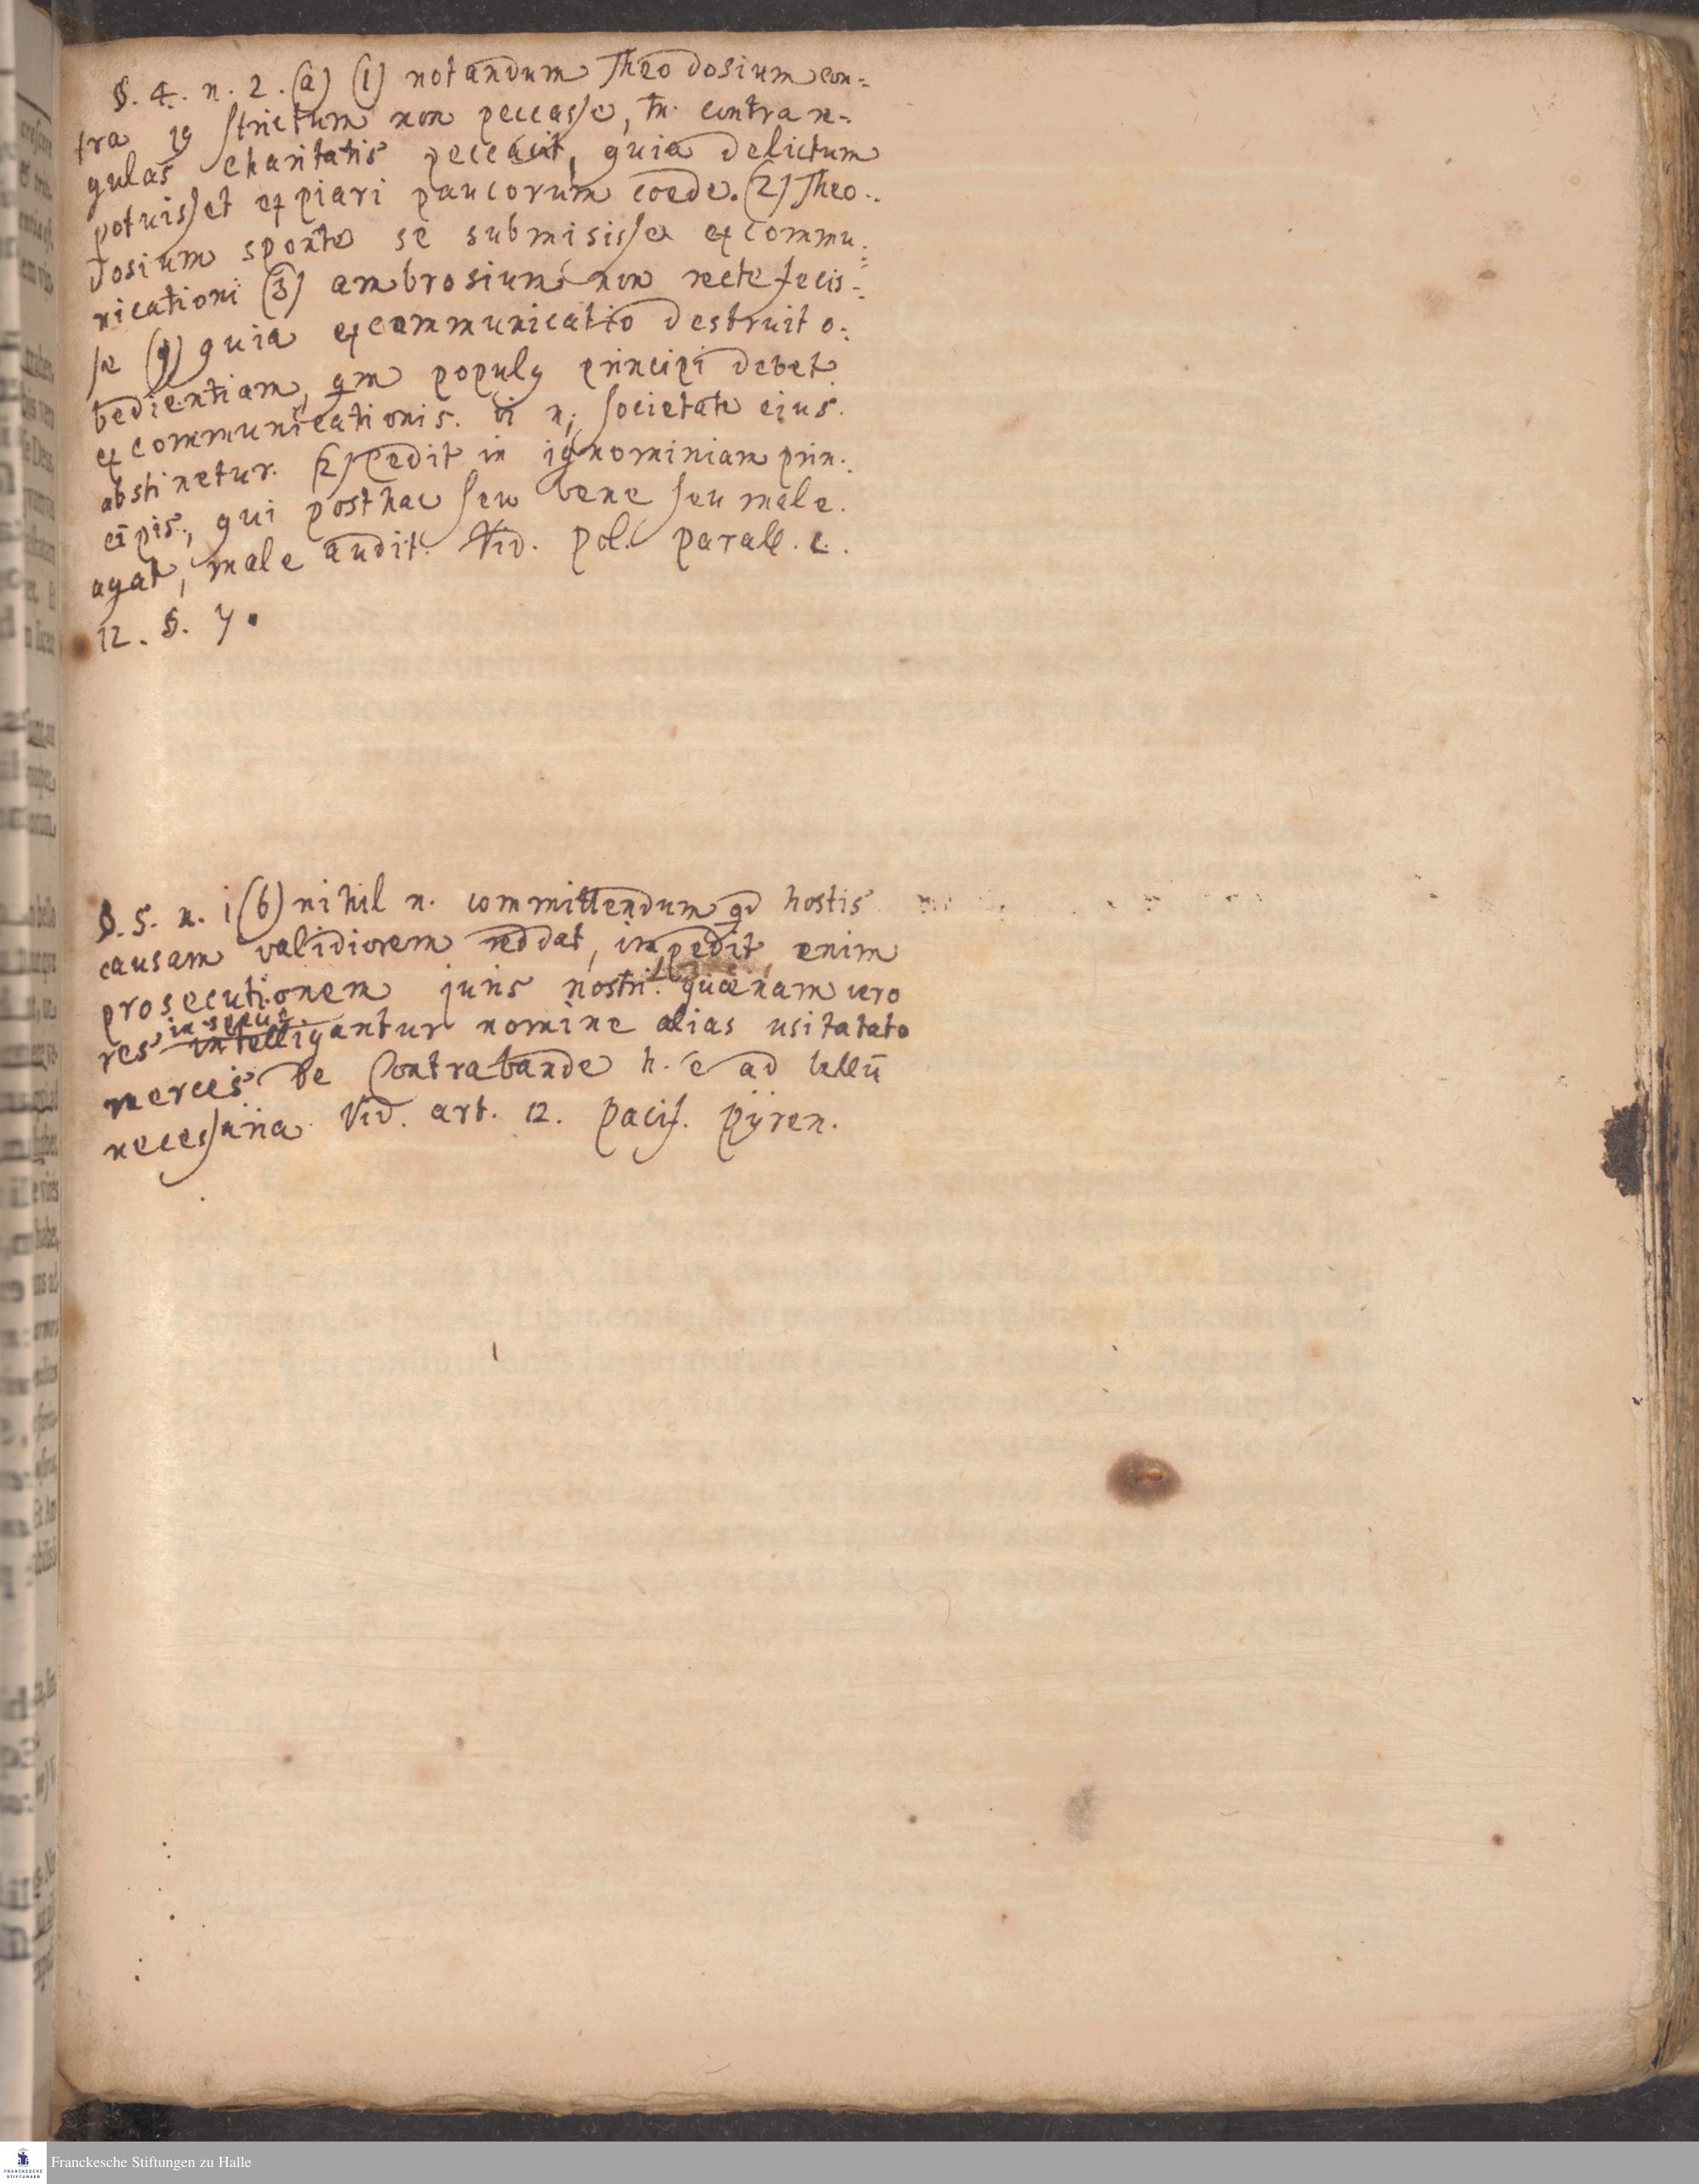 §. 4. n. 2. (a) (1) notandum Theodosium con=
tra jq strictum non peccasse, tn. contra re-
gulas charitatis peccavit, quia delictum
potuisset expiari paucorum coede. (2) Theo-
dosium sponte se submisisse excommu=
nicationi (3) ambrosium non recte fecis=
se (1) quia excommunicatio destruit o=
bedientiam, qm populq principi debet.
excommunicationis. vi n; societate ejus.
abstinetur. (2) cedit in ignominiam prin=
cipis, qui posthac seu bene seu male.
agat, male audit. Vid. pol. parall. c.
12. §. 7.
§. 5. n. i (b) nihil n. committendum qd hostis
causam validiorem reddat, impedit enim
prosecutionem juris nostri. quaenam vero
in specie
res intelligantur nomine alias usitatato
merces de Contrabande h. e ad bellū
necessaria. Vid. art. 12. pacif. pÿren.
Franckesche Stiftungen zu Halle